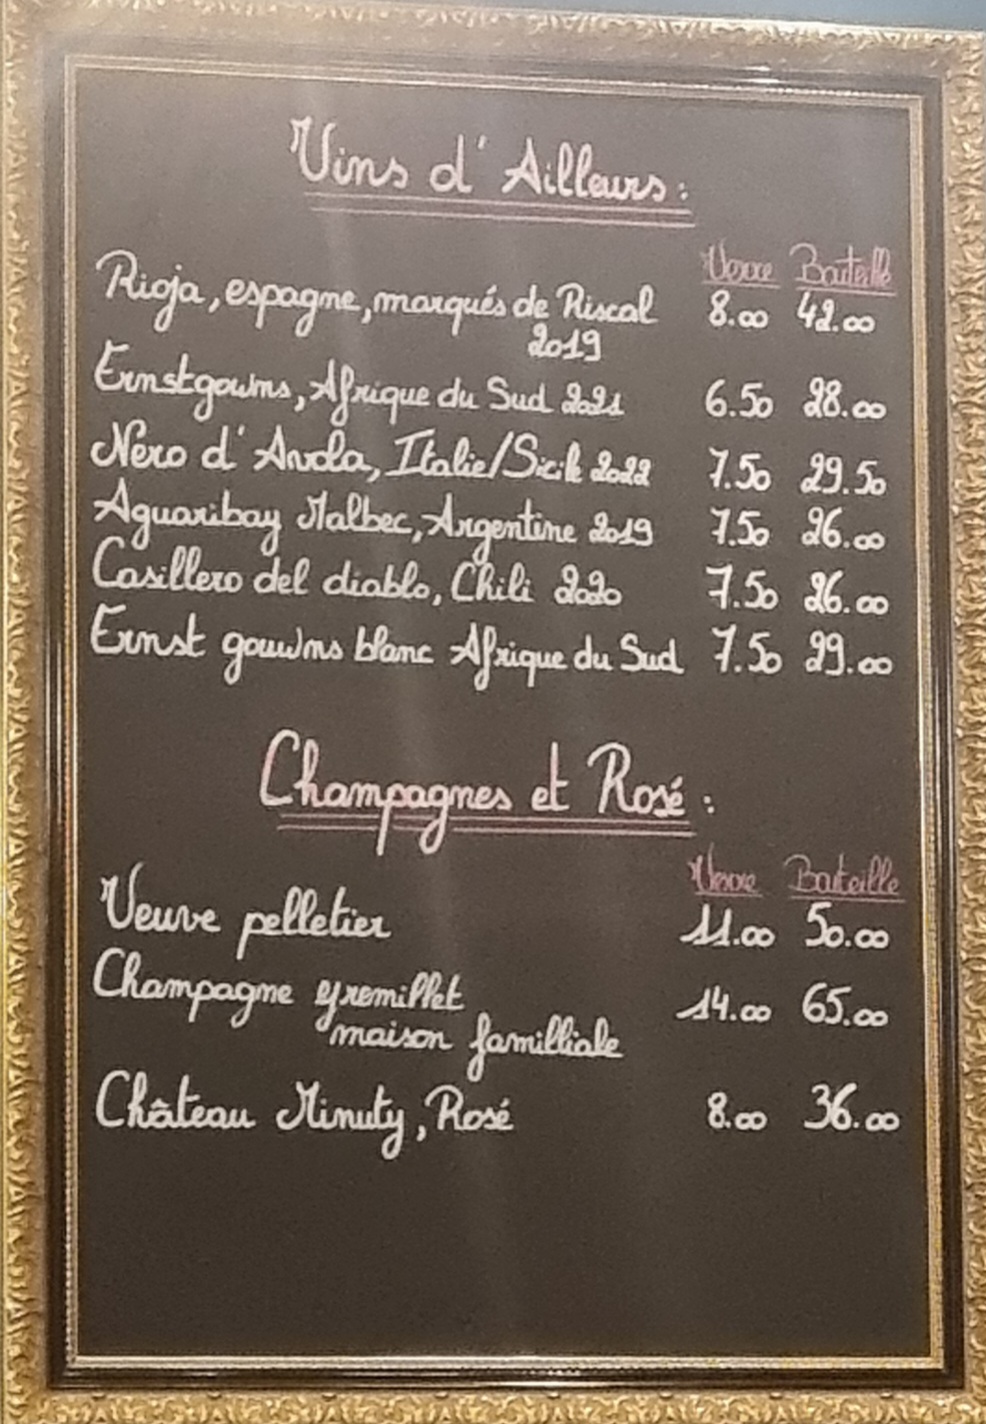 Vins d'Ailleurs :
Verre Bouteille
Rioja, espagne, marqués de Riscal 8.00 42.00
2019
Ernstgouws, Afrique du Sud 2021 6.50 28.00
Nero d'Avola, Italie/Sicile 2022 7.50 29.50
Aguaribay Malbec, Argentine 2019 7.50 26.00
Casillero del diablo, Chili 2020 7.50 26.00
Ernst gouwns blanc Afrique du Sud 7.50 29.00
Champagnes et Rosé :
Verre Bouteille
Veuve pelletier 11.00 50.00
Champagne gremillet 14.00 65.00
maison familliale
Château Minuty, Rosé 8.00 36.00